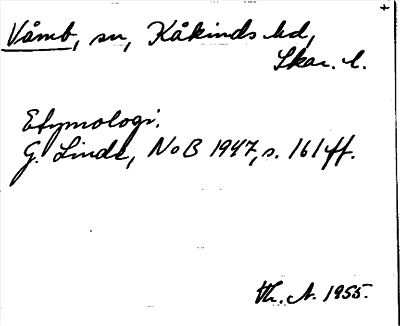 +
Våmb, sn, Kåkinds hd,
Skar. l.
Etymologi.
G. Linde, NoB 1947, s. 161 ff.
Th. A. 1955.